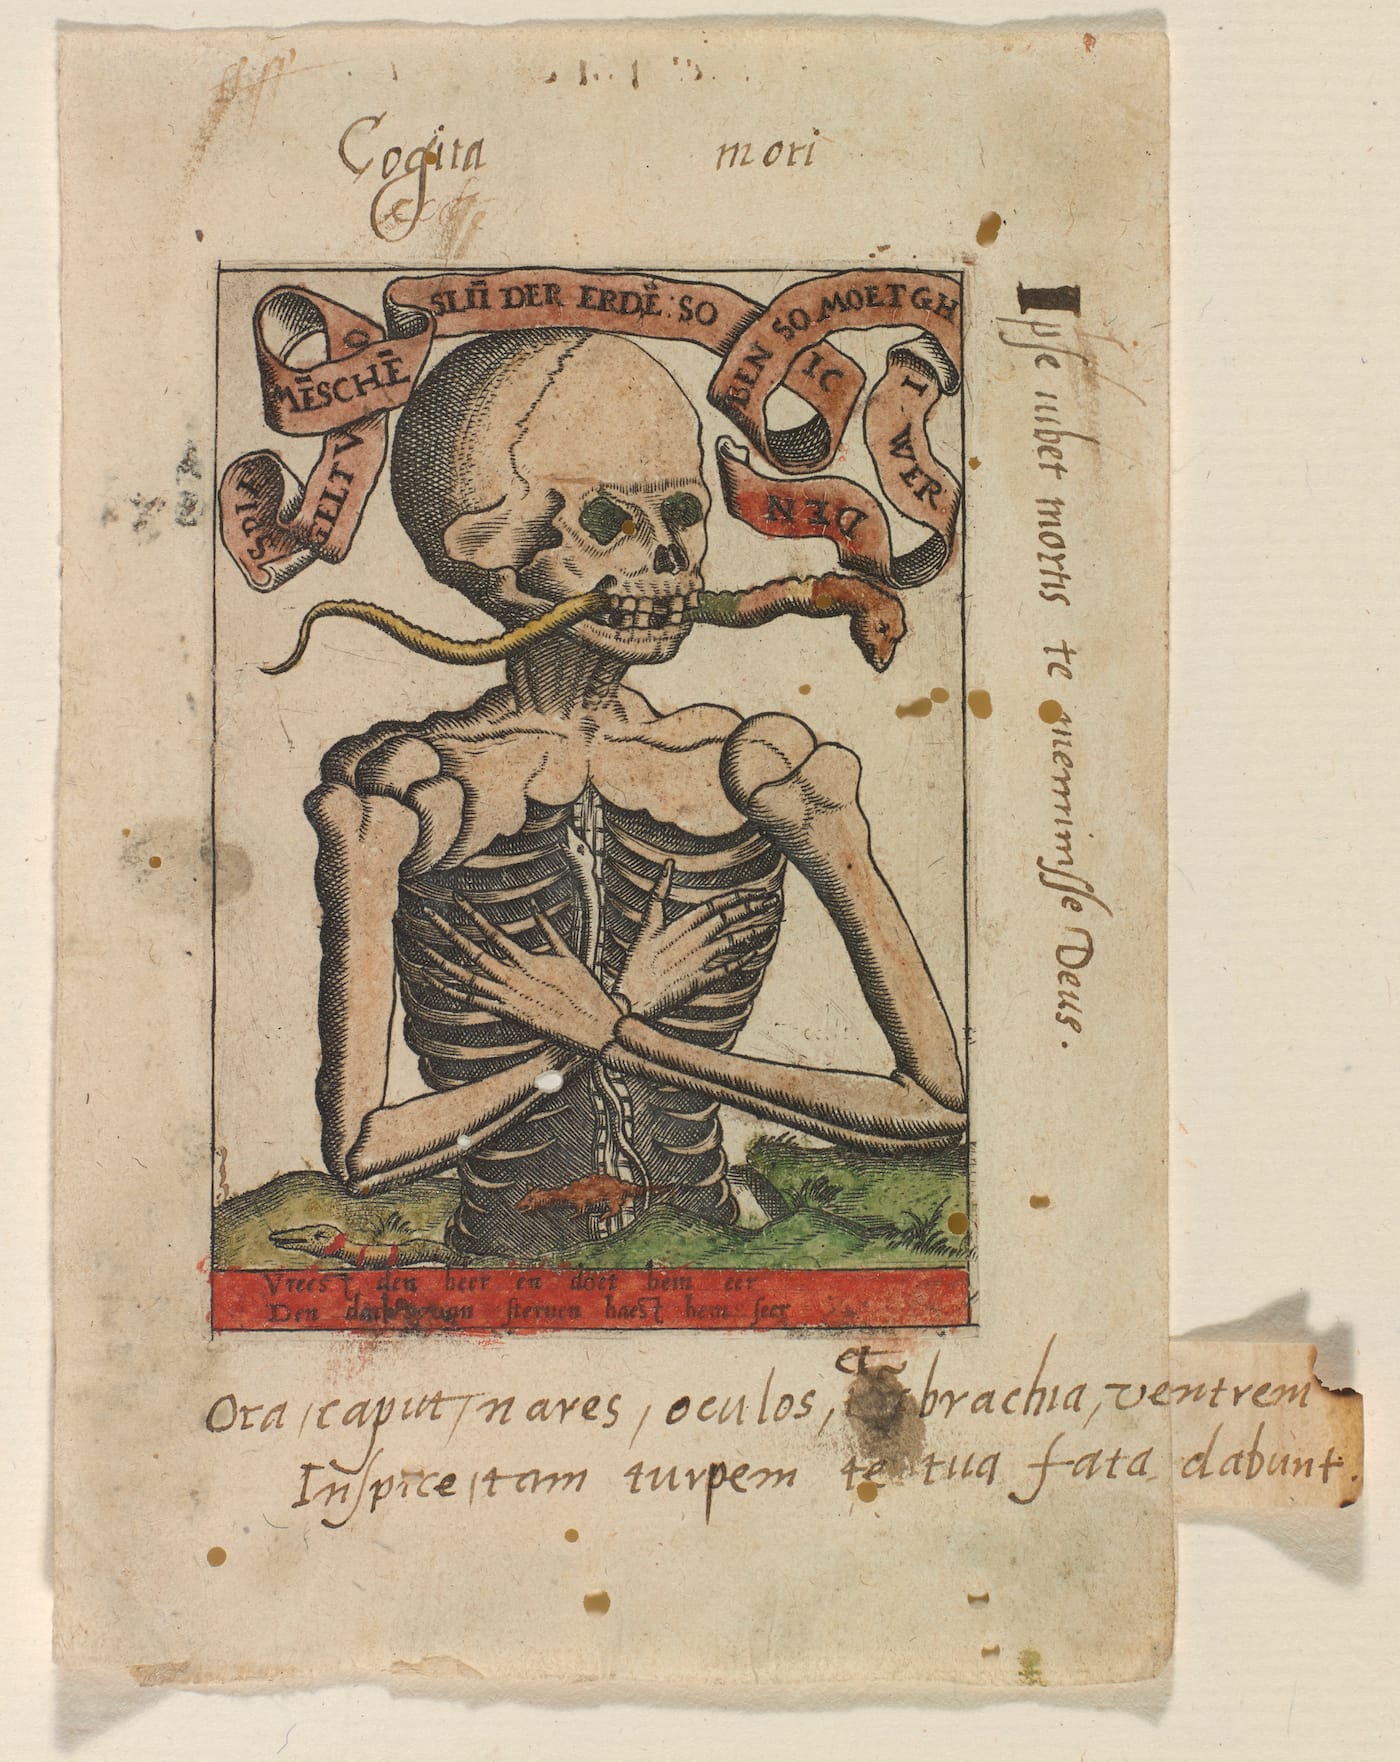 Cogita mori
O
MĒSCHĒ
SLŪ DER ERDĒ: SO
IC
BEN SO MOET GH
I WER
DEN
Ipse iubet mortis te meminisse Deus.
Vreest den heer en doet hem eer
Den sterven haest hem seer
Ora, caput, nares, oculos, et brachia, ventrem
Inspice, tam turpem te tua fata dabunt.